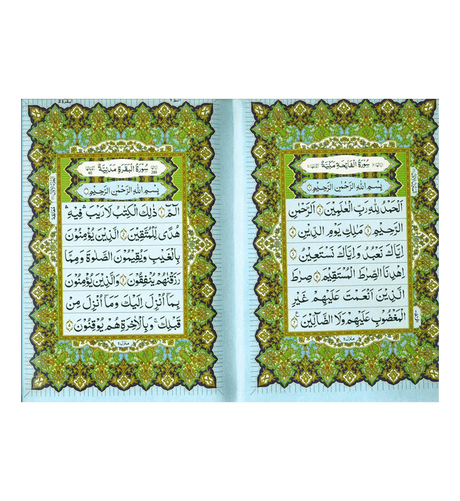 سُوْرَةُ الْفَاتِحَةِ مَكِّيَّةٌ
بِسْمِ اللهِ الرَّحْمٰنِ الرَّحِيْمِ
اَلْحَمْدُ لِلّٰهِ رَبِّ الْعٰلَمِيْنَ ۙ الرَّحْمٰنِ
الرَّحِيْمِ ۙ مٰلِكِ يَوْمِ الدِّيْنِ ؕ
اِيَّاكَ نَعْبُدُ وَاِيَّاكَ نَسْتَعِيْنُ ؕ
اِهْدِنَا الصِّرَاطَ الْمُسْتَقِيْمَ ۙ صِرَاطَ
الَّذِيْنَ اَنْعَمْتَ عَلَيْهِمْ ۙ غَيْرِ
الْمَغْضُوْبِ عَلَيْهِمْ وَلَا الضَّآلِّيْنَ
سُوْرَةُ الْبَقَرَةِ مَدَنِيَّةٌ
بِسْمِ اللهِ الرَّحْمٰنِ الرَّحِيْمِ
الٓمّٓ ۚ ذٰلِكَ الْكِتٰبُ لَا رَيْبَ ۛ فِيْهِ ۛ
هُدًى لِّلْمُتَّقِيْنَ ۙ الَّذِيْنَ يُؤْمِنُوْنَ
بِالْغَيْبِ وَيُقِيْمُوْنَ الصَّلٰوةَ وَمِمَّا
رَزَقْنٰهُمْ يُنْفِقُوْنَ ۙ وَالَّذِيْنَ يُؤْمِنُوْنَ
بِمَآ اُنْزِلَ اِلَيْكَ وَمَآ اُنْزِلَ مِنْ
قَبْلِكَ ۚ وَبِالْاٰخِرَةِ هُمْ يُوْقِنُوْنَ